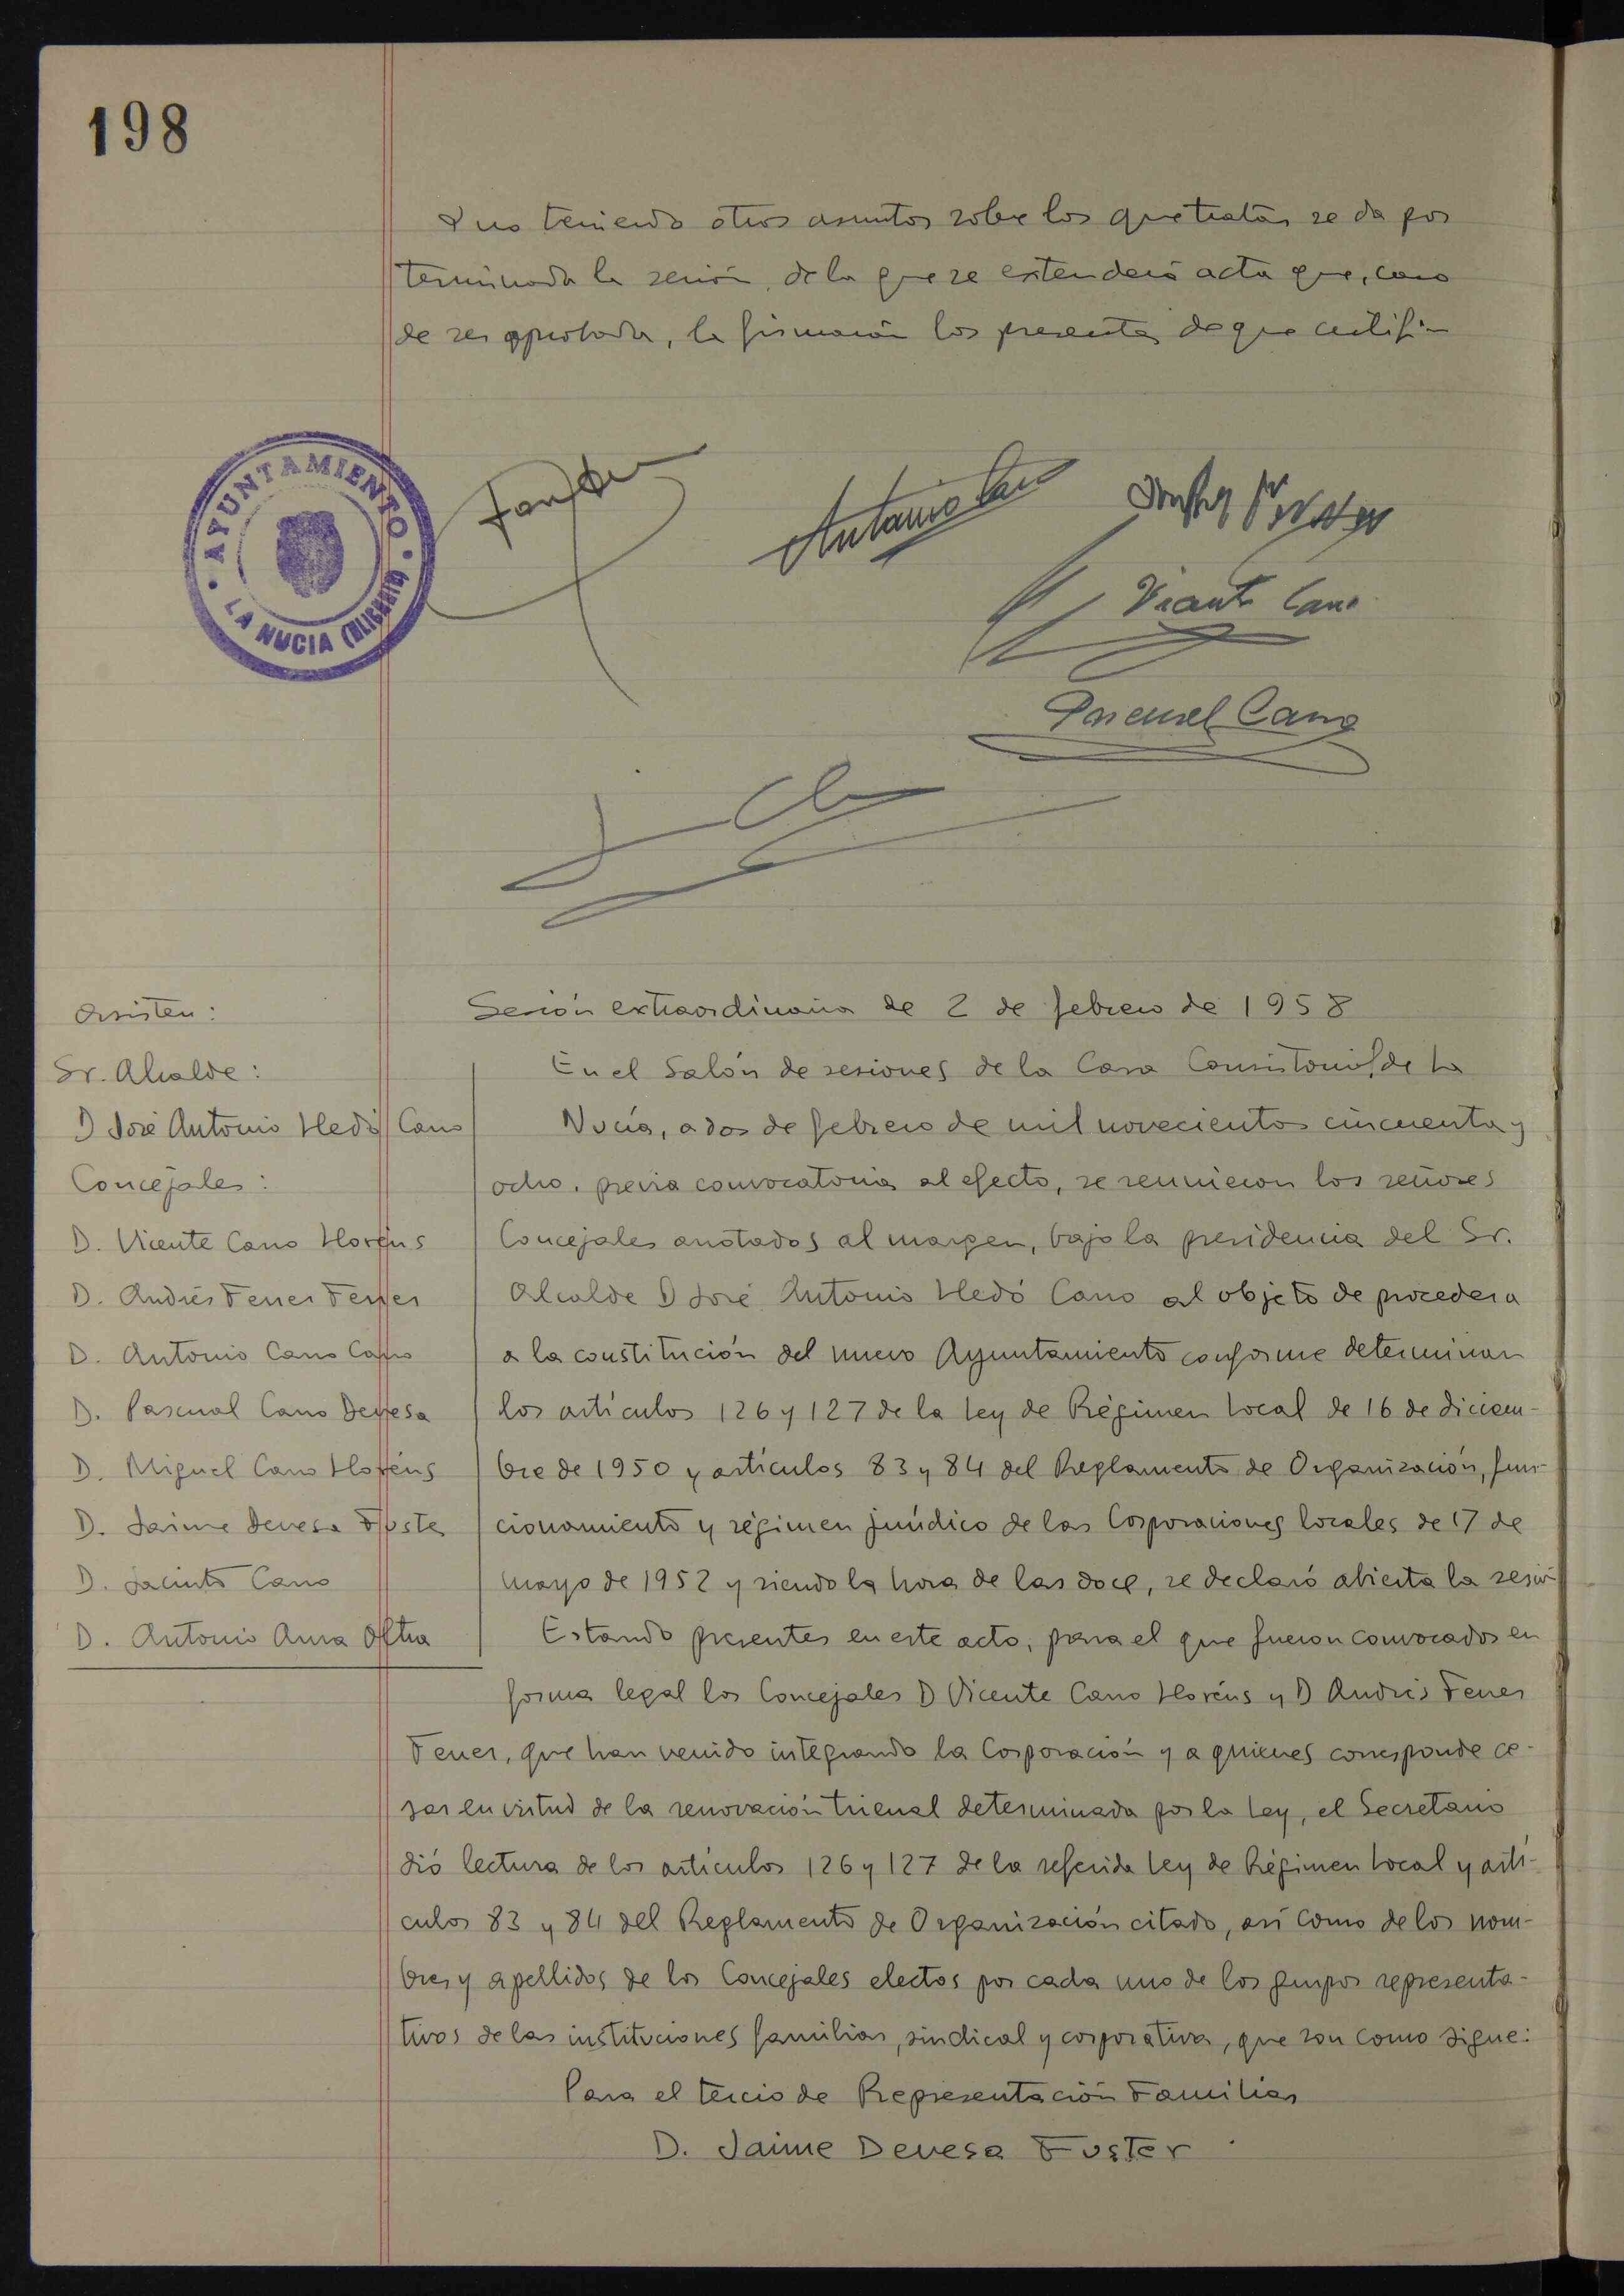 198
Y no teniendo otros asuntos sobre los que tratar se da por
terminada la sesión, de la que se extenderá acta que, caso
de ser aprobada, la firmarán los presentes de que certifico
AYUNTAMIENTO
LA NUCIA (ALICANTE)
Antonio Cano
Vicente Cano
Pascual Cano
Asisten:
Sr. Alcalde:
D José Antonio Lledó Cano
Concejales:
D. Vicente Cano Lloréns
D. Andrés Ferrer Ferrer
D. Antonio Cano Cano
D. Pascual Cano Devesa
D. Miguel Cano Lloréns
D. Jaime Devesa Fuster
D. Jacinto Cano
D. Antonio Aura Oltra
Sesión extraordinaria de 2 de febrero de 1958
En el Salón de sesiones de la Casa Consistorial de La
Nucía, a dos de febrero de mil novecientos cincuenta y
ocho, previa convocatoria al efecto, se reunieron los señores
Concejales anotados al margen, bajo la presidencia del Sr.
Alcalde D José Antonio Lledó Cano al objeto de proceder a
a la constitución del nuevo Ayuntamiento conforme determinan
los artículos 126 y 127 de la Ley de Régimen Local de 16 de diciem-
bre de 1950 y artículos 83 y 84 del Reglamento de Organización, fun-
cionamiento y régimen jurídico de las Corporaciones locales de 17 de
mayo de 1952 y siendo la hora de las doce, se declaró abierta la sesión
Estando presentes en este acto, para el que fueron convocados en
forma legal los Concejales D Vicente Cano Lloréns y D Andrés Ferrer
Ferrer, que han venido integrando la Corporación y a quienes corresponde ce-
sar en virtud de la renovación trienal determinada por la Ley, el Secretario
dió lectura de los artículos 126 y 127 de la referida Ley de Régimen Local y artí-
culos 83 y 84 del Reglamento de Organización citado, así como de los nom-
bres y apellidos de los Concejales electos por cada uno de los grupos representa-
tivos de las instituciones familiar, sindical y corporativa, que son como sigue:
Para el tercio de Representación Familiar
D. Jaime Devesa Fuster